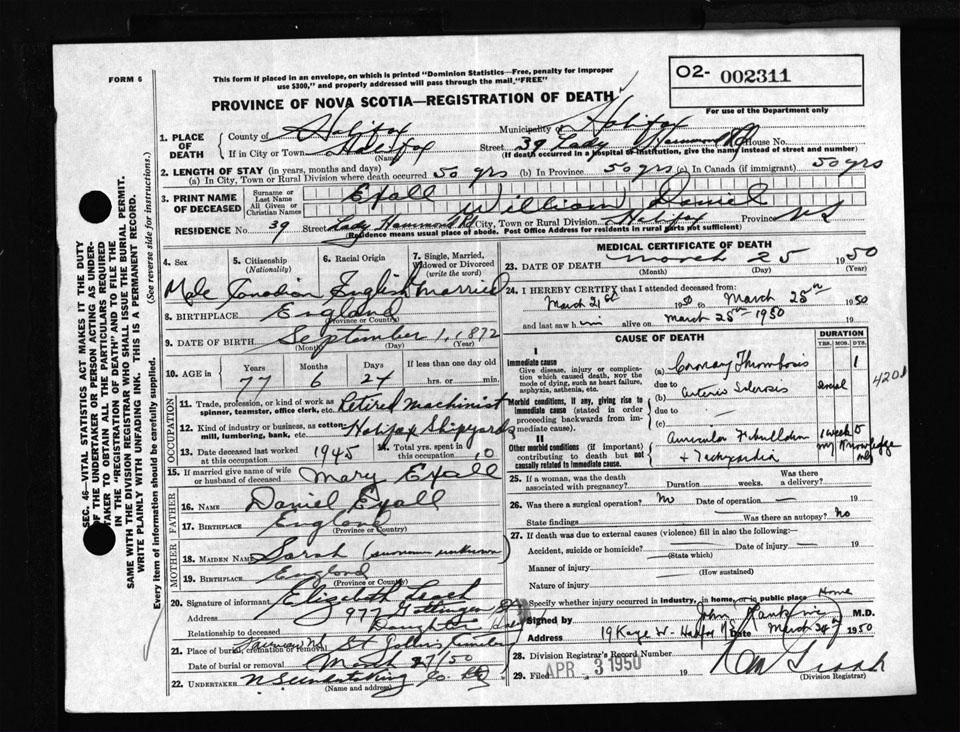 FORM 6
This form if placed in an envelope, on which is printed "Dominion Statistics—Free, penalty for improper
use $300," and properly addressed will pass through the mail, "FREE"
O2- 002311
For use of the Department only
PROVINCE OF NOVA SCOTIA—REGISTRATION OF DEATH
1. PLACE OF DEATH
County of Halifax Municipality of Halifax
If in City or Town Halifax Street 39 Lady Hammond Rd House No.
(Name) (If death occurred in a hospital or institution, give the name instead of street and number)
2. LENGTH OF STAY (in years, months and days)
(a) In City, Town or Rural Division where death occurred 50 yrs (b) In Province 50 yrs (c) In Canada (if immigrant) 50 yrs
3. PRINT NAME OF DECEASED
Surname or Last Name Exall
All Given or Christian Names William Daniel
RESIDENCE No. 39 Street Lady Hammond Rd City, Town or Rural Division Halifax Province N.S
(Residence means usual place of abode. Post Office Address for residents in rural parts not sufficient)
4. Sex
Male
5. Citizenship (Nationality)
Canadian
6. Racial Origin
English
7. Single, Married, Widowed or Divorced (write the word)
Married
8. BIRTHPLACE England
(Province or Country)
9. DATE OF BIRTH September 1, 1872
(Month) (Day) (Year)
10. AGE in Years Months Days If less than one day old
77 6 24 hrs. or min.
OCCUPATION
11. Trade, profession, or kind of work as spinner, teamster, office clerk, etc. Retired Machinist
12. Kind of industry or business, as cotton mill, lumbering, bank, etc. Halifax Shipyards
13. Date deceased last worked at this occupation 1945
14. Total yrs. spent in this occupation 10
15. If married give name of wife or husband of deceased Mary Exall
FATHER
16. Name Daniel Exall
17. Birthplace England
(Province or Country)
MOTHER
18. Maiden Name Sarah (surname unknown)
19. Birthplace England
(Province or Country)
20. Signature of informant Elizabeth Leach
Address 977 Gottingen St
Relationship to deceased Daughter
21. Place of burial, cremation or removal St
Date of burial or removal March 27/50
22. UNDERTAKER N S Undertaking Co.
(Name and address)
MEDICAL CERTIFICATE OF DEATH
23. DATE OF DEATH March 25 1950
(Month) (Day) (Year)
24. I HEREBY CERTIFY that I attended deceased from:
March 21st 1950 to March 25th 1950
and last saw him alive on March 25th 1950 19
CAUSE OF DEATH
DURATION
YRS. MOS. DYS.
I
Immediate cause
Give disease, injury or complication which caused death, not the mode of dying, such as heart failure, asphyxia, asthenia, etc.
(a) Coronary Thrombosis 1
due to
Morbid conditions, if any, giving rise to immediate cause (stated in order proceeding backwards from immediate cause).
(b) Arterio Sclerosis
due to
(c)
4201
II
Other morbid conditions (if important) contributing to death but not causally related to immediate cause.
Auricular Fibrillation
+ Tachycardia
1 week to
my knowledge
only
25. If a woman, was the death associated with pregnancy? Duration weeks. Was there a delivery?
26. Was there a surgical operation? No Date of operation — 19
State findings Was there an autopsy? No
27. If death was due to external causes (violence) fill in also the following:
Accident, suicide or homicide? Date of injury — 19
(State which)
Manner of injury
(How sustained)
Nature of injury
Specify whether injury occurred in industry, in home, or in public place Home
Signed by John Rankine M.D.
Address 19 Kaye W- Halifax N.S Date March 1950
28. Division Registrar's Record Number
29. Filed APR 3 1950 19
(Division Registrar)
SEC. 46—VITAL STATISTICS ACT MAKES IT THE DUTY
OF THE UNDERTAKER OR PERSON ACTING AS UNDER-
TAKER TO OBTAIN ALL THE PARTICULARS REQUIRED
IN THE "REGISTRATION OF DEATH" AND TO FILE THE
SAME WITH THE DIVISION REGISTRAR WHO SHALL ISSUE THE BURIAL PERMIT.
WRITE PLAINLY WITH UNFADING INK. THIS IS A PERMANENT RECORD.
Every item of information should be carefully supplied. (See reverse side for instructions.)